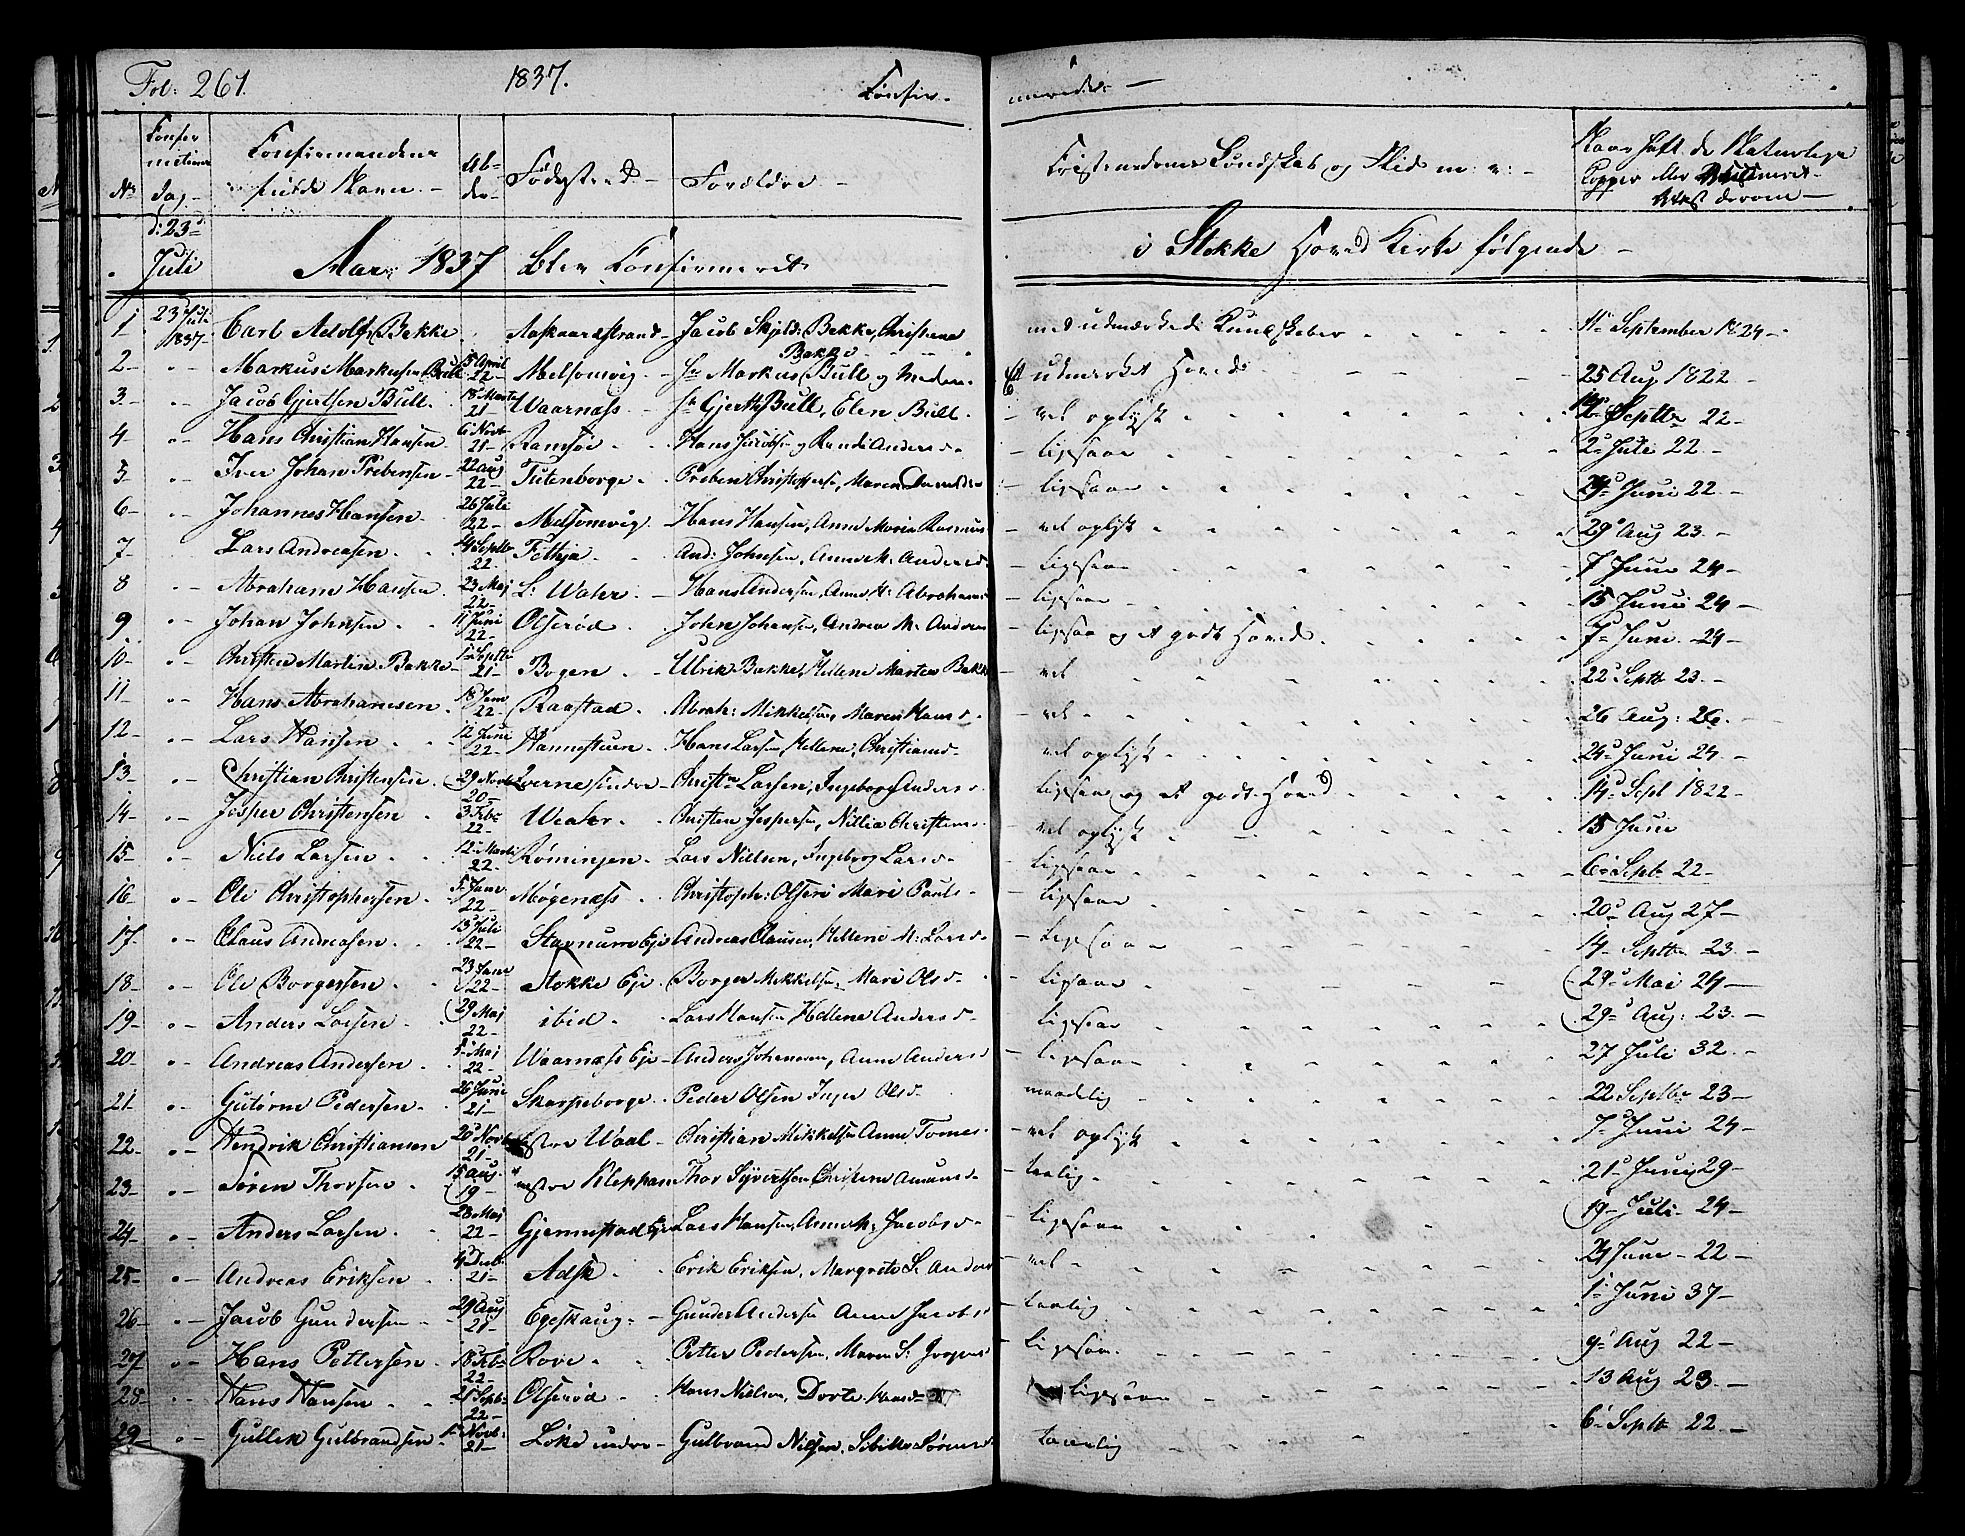 Fol: 261. 1837. Confir- merede.
No Confirmations Dag Confirmandens fulde Navn Al- der Fødested Forældre Christendoms Kundskab og Flid m: v: Naar haft de Naturlige Kopper eller Vaccineret Attest derom
d: 23d Juli Aar 1837 Blev Confirmeret i Stokke Hoved Kirke følgende
1 23 Juli 1837 Carl Adolf Bakke Aasgaardstrand Jacob Skjold: Bakke, Christiene Bakke med udmærkede Kundskaber 11 September 1824
2 Markus Markussen Bull 15 April 22 Melsomvig Hr Markus Bull og Et udmerket Hoved 25 Aug 1822
3 Jacob Gjertsen Bull 18 Marts 21 Vaarnæss Hr Gjerth Bull, Elen Bull vel oplyst Septbr 22
4 Hans Christian Hansen 6 Novb 21 Ramsøe Hans Jacobsen og Randi Andersd ligesaa 2 Juli 22
5 Iver Johan Prebensen 22 Aug 22 Tutenborge Preben Christophersen, Maren ligesaa 29 Juni 22
6 Johannes Hansen 26 Juli 22 Melsomvig Hans Hansen, Anne Maria Rasmus vel oplyst 29 Aug 23
7 Lars Andreasen Septb 22 Fethja And: Johnsen, Anne M: Andersd ligesaa 7 Juni 24
8 Abraham Hansen 23 Maj 22 L: Waler Hans Andersen, Anne H: Abrahams ligesaa 15 Juni 24
9 Johan Johnsen 11 Juni 22 Olserød John Johansen, Andrea M: Anders ligesaa og et godt Hoved 7 Juni 24
10 Christen Martin Bakke 1 Septb 21 Bogen Ulrik Bakke, Hellene Marten Bakk vel 22 Septb 23
11 Hans Abrahamsen 18 Jan 22 Raastad Abrah: Mikkelsen, Maren Hansd vel 26 Aug: 26
12 Lars Hansen 12 Juni 22 Hannesteen Hans Larsen, Hellene Christiansd vel oplyst 24 Juni 24
13 Christian Christensen 29 Novb 20 Qverne søndre Christen Larsen, Ingeborg Andersd ligesaa og et godt Hoved 14 Sept 1822
14 Jesper Christensen 3 Feb 22 Wealer Christen Jespersen, Nillia Christens vel oplyst 15 Juni
15 Niels Larsen 12 Marti 22 Rømingen Lars Nielsen, Ingeborg Larsd ligesaa 6 Septb 22
16 Ole Christophersen 5 Jan 22 Møgenæss Christoph: Olsen Mari Pauls ligesaa 20 Aug 27
17 Claus Andreasen 13 Juli 22 Stavnum Eje Andreas Clausen, Hellene M: Larsd ligesaa 14 Septb 23
18 Ole Borgersen 23 Jan 22 Stokke Eje Borger Mikkelsen, Mari Olsd ligesaa 29 Mai 24
19 Anders Larsen 29 Maj 22 ibid Lars Hansen Hellene Andersd ligesaa 29 Aug: 23
20 Andreas Andersen 5 Maj 22 Vaarnæss Eje Anders Johannesen, Anne Andersd ligesaa 27 Juli 32
21 Gutorm Pedersen 26 Juni 21 Skarpeborge Peder Olsen Inger Olsd maadelig 22 Septbr 23
22 Hendrik Christiansen 20 Novb 21 Waal Christian Mikkelsen Anne Tomes vel oplyst 7 Juni 24
23 Søren Thorsen 15 Aug 19 Kleppan Thor Syvertsen Christiene Amunds taalig 21 Juni 29
24 Anders Larsen 28 Maj 22 Gjennestad Eje Lars Hansen, Anne M: Jacobsd ligesaa 19 Juli 24
25 Andreas Eriksen 4 Decb 21 Adsk Erik Eriksen, Margrete S: Ander vel 29 Juni 22
26 Jacob Gundersen 29 Aug 21 Egeskaug Gunder Andersen Anne Jacobs taalig 1 Juni 37
27 Hans Pettersen 18 Feb 22 Rove Petter Pedersen, Maren S: ligesaa 9 Aug 22
28 Hans Hansen 21 Septb 22 Olserød Hans Nielsen, Dorte Hansd ligesaa 13 Aug 23
29 Gullek Gulbrandsen 1 Novb 21 Løke nedre Gulbrand Nilsen, Sibille Sørens taalelig 6 Septb 22